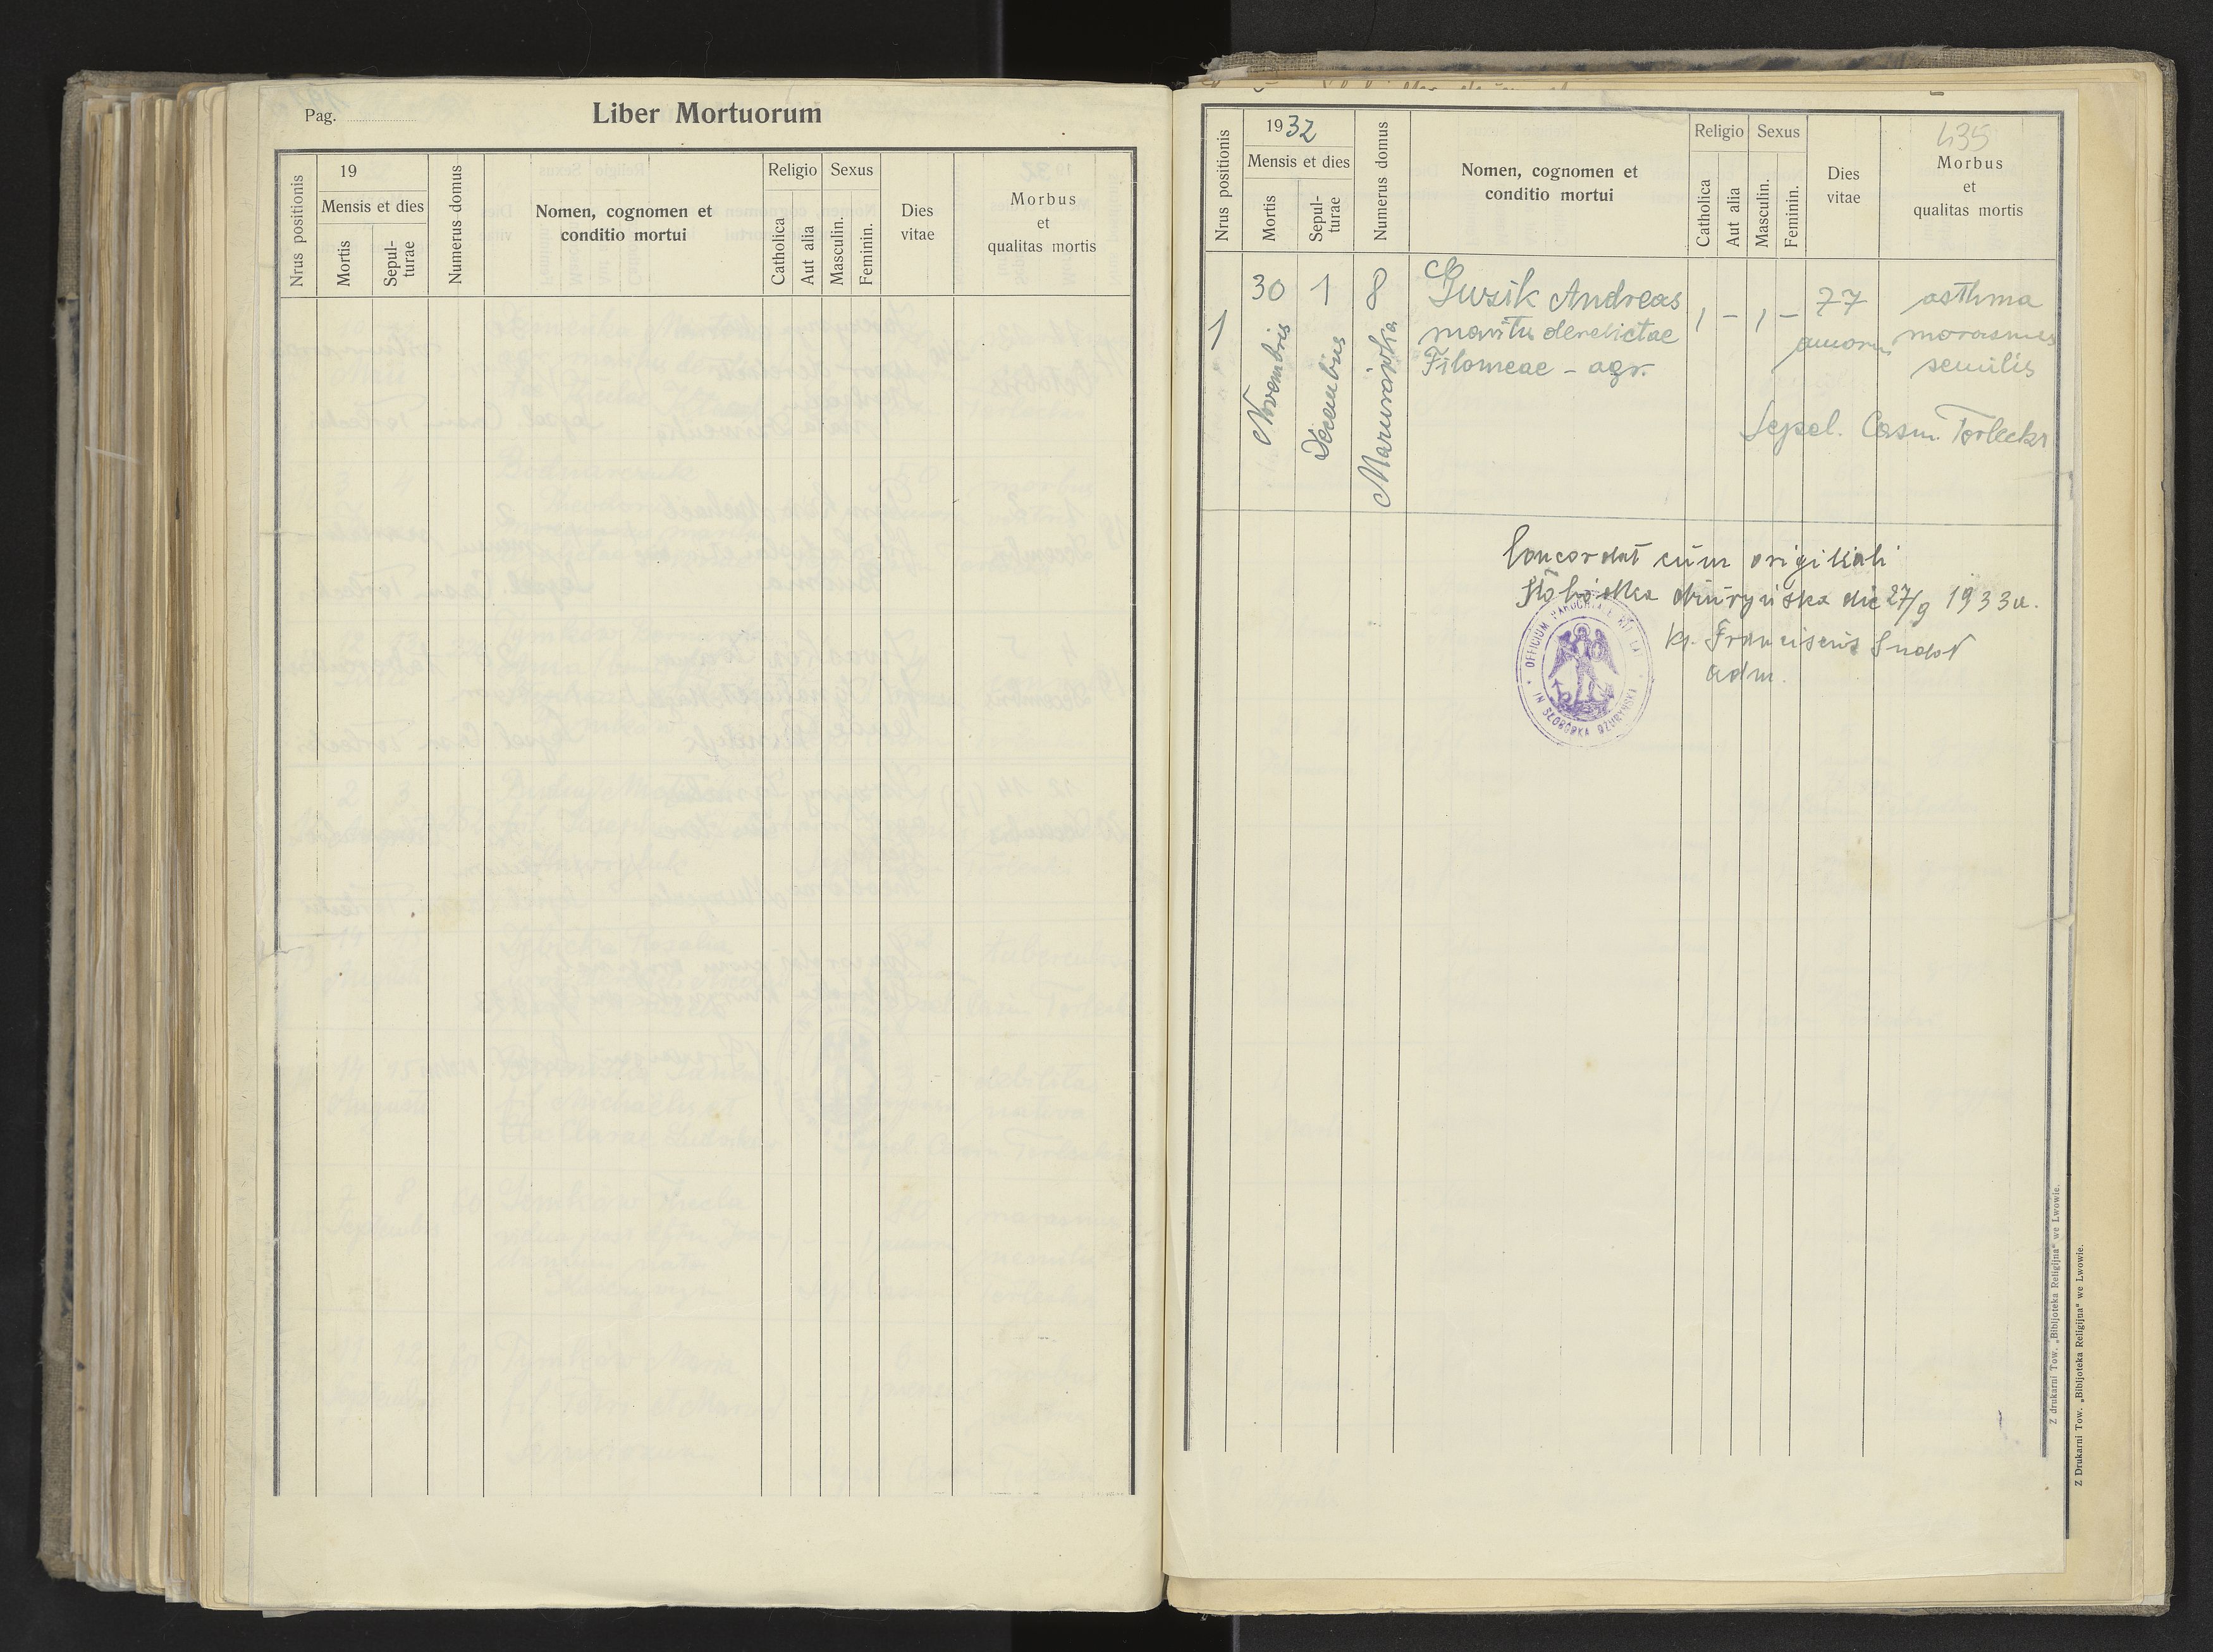 Pag.
Liber Mortuorum
Nrus positionis
19
Mensis et dies
Mortis
Sepul-
turae
Numerus domus
Nomen, cognomen et
conditio mortui
Religio
Catholica
Aut alia
Sexus
Masculin.
Feminin.
Dies
vitae
Morbus
et
qualitas mortis
435
Nrus positionis
1932
Mensis et dies
Mortis
Sepul-
turae
Numerus domus
Nomen, cognomen et
conditio mortui
Religio
Catholica
Aut alia
Sexus
Masculin.
Feminin.
Dies
vitae
Morbus
et
qualitas mortis
1
30
Novembris
1
Decembris
8
Guzik Andreas
maritus derelictae
Filomeae - agr.
1 - 1 -
77
annorum
asthma
marasmus
senilis
Sepel. Casim. Torlecki
Concordat cum originali
Słobódka dżuryńska die 27/9 1933 a.
Ks. Franciscus
adm.
OFFICIUM PAROCHIALE RIT. LAT.
IN SŁOBÓDKA DŻURYŃSKA
Z drukarni Tow. „Bibljoteka Religijna" we Lwowie.
Z Drukarni Tow. „Bibljoteka Religijna" we Lwowie.